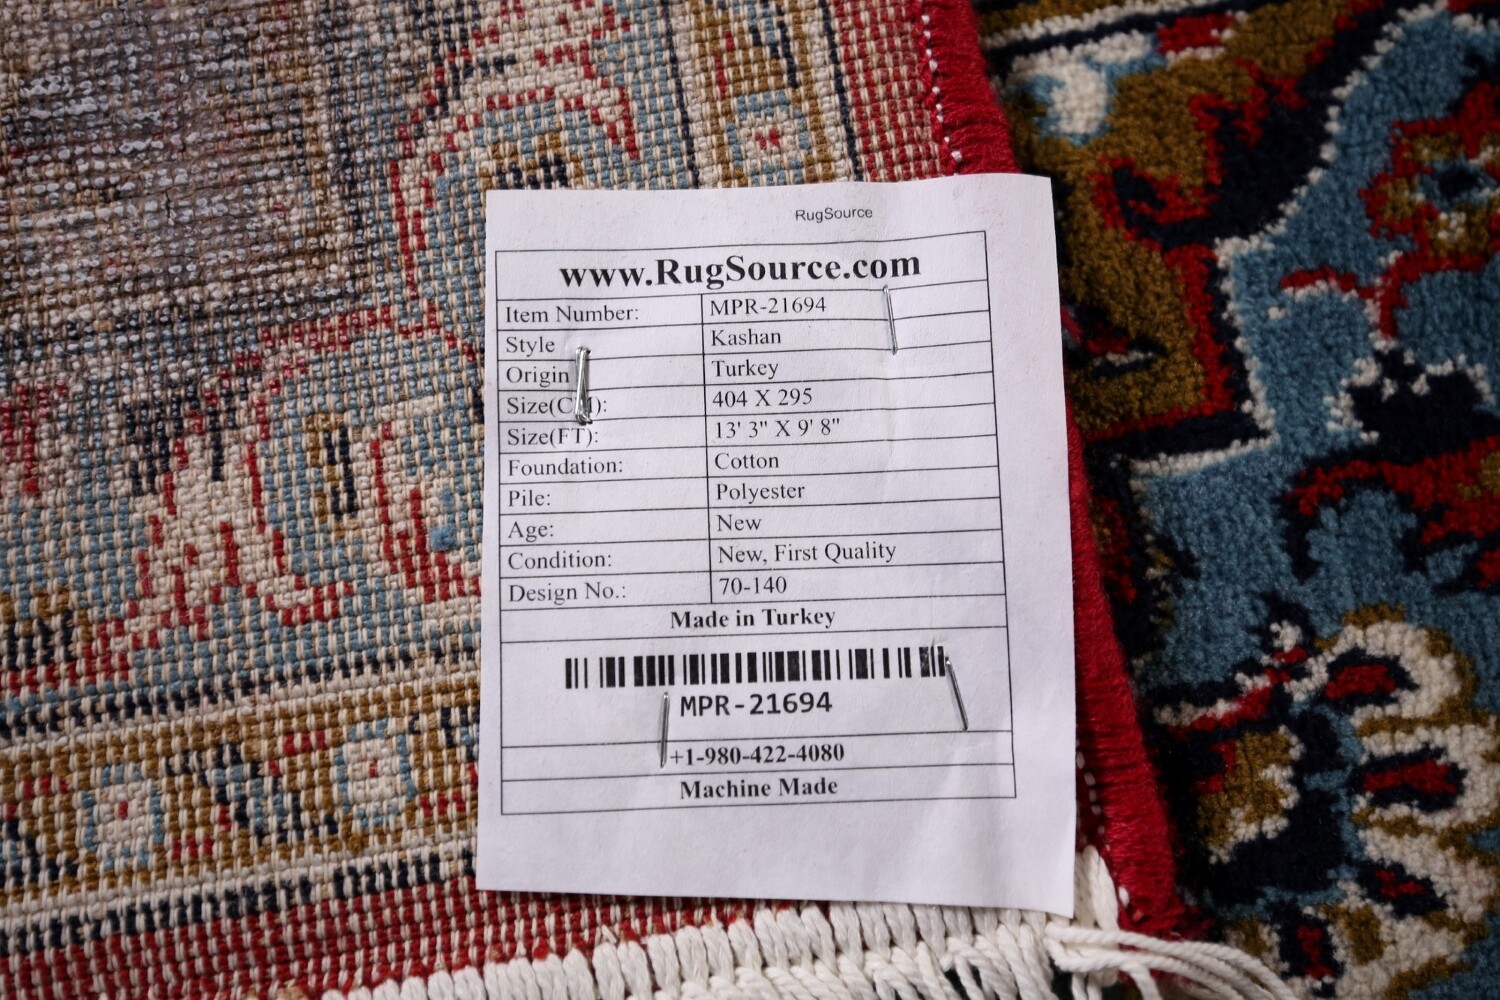 RugSource
www.RugSource.com
Item Number: MPR-21694
Style Kashan
Origin Turkey
Size(CM): 404 X 295
Size(FT): 13' 3" X 9' 8"
Foundation: Cotton
Pile: Polyester
Age: New
Condition: New, First Quality
Design No.: 70-140
Made in Turkey
MPR-21694
+1-980-422-4080
Machine Made